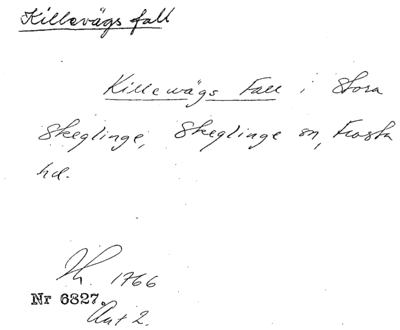 Killevägs fall
Killewägs Fall i Stora
Skeglinge, Skeglinge sn, Frosta
hd.
1766
Nr 6827.
Akt 2.